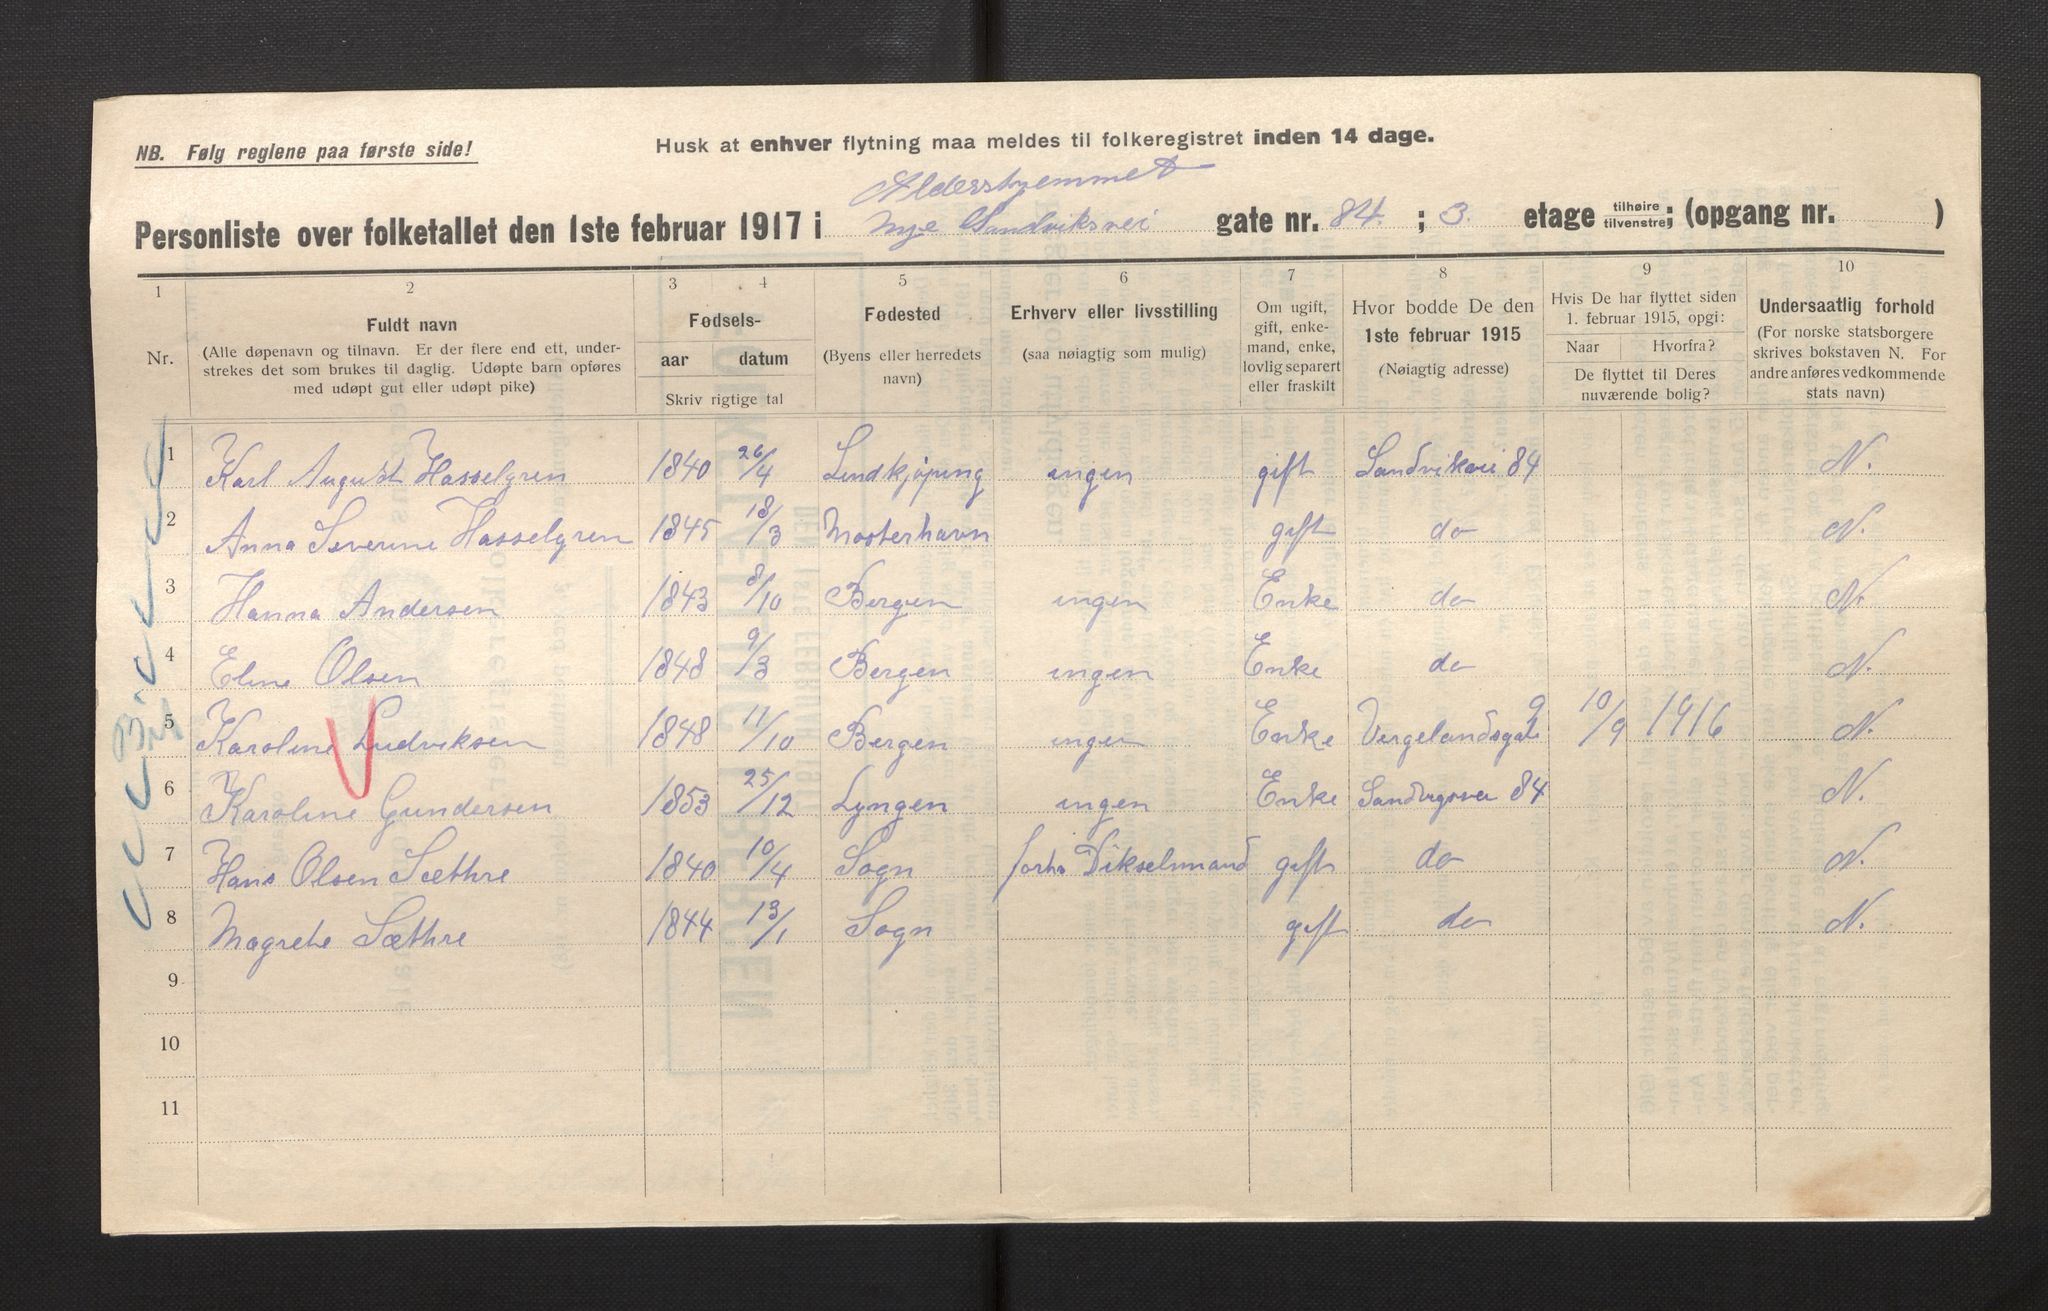 NB. Følg reglene paa første side!
Husk at enhver flytning maa meldes til folkeregistret inden 14 dage.
Aldershjemmet
Personliste over folketallet den 1ste februar 1917 i Nye Sandviksvei gate nr. 84. ; 3. etage tilhøire tilvenstre; (opgang nr. )
1 2 3 4 5 6 7 8 9 10
Nr.
Fuldt navn
(Alle døpenavn og tilnavn. Er der flere end ett, under-
strekes det som brukes til daglig. Udøpte barn opføres
med udøpt gut eller udøpt pike)
Fødsels-
aar datum
Skriv rigtige tal
Fødested
(Byens eller herredets
navn)
Erhverv eller livsstilling
(saa nøiagtig som mulig)
Om ugift,
gift, enke-
mand, enke,
lovlig separert
eller fraskilt
Hvor bodde De den
1ste februar 1915
(Nøiagtig adresse)
Hvis De har flyttet siden
1. februar 1915, opgi:
Naar Hvorfra?
De flyttet til Deres
nuværende bolig?
Undersaatlig forhold
(For norske statsborgere
skrives bokstaven N. For
andre anføres vedkommende
stats navn)
1 Karl August Hasselgren 1840 26/4 Lindkjøping ingen gift Sandviksvei 84 N.
2 Anna Severine Hasselgren 1845 18/3 Mosterhavn gift do N.
3 Hanna Andersen 1843 8/10 Bergen ingen Enke do N.
4 Eline Olsen 1848 9/3 Bergen ingen Enke do N.
5 Karoline Ludviksen 1848 11/10 Bergen ingen Enke Vergelandsgate 9 10/9 1916 N.
6 Karoline Gundersen 1853 25/12 Lyngen ingen Enke Sandvigsvei 84 N.
7 Hans Olsen Sæthre 1840 10/4 Sogn gift do N.
8 Magrete Sæthre 1844 13/1 Sogn gift do N.
9
10
11